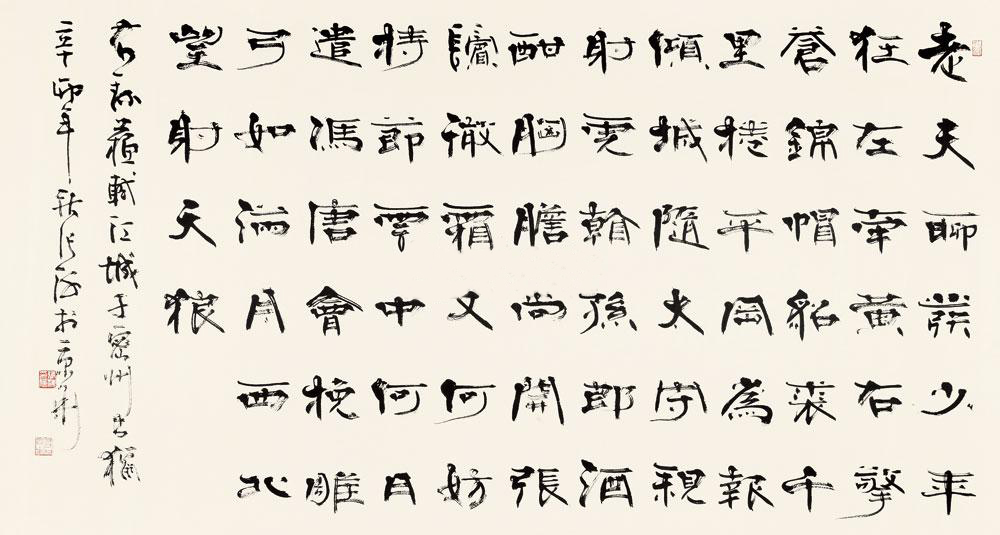 老夫聊發少年
狂左牽黃右擎
蒼錦帽貂裘千
里捲平岡為報
傾城隨太守親
射虎看孫郎酒
酣胸膽尚開張
鬢微霜又何妨
持節雲中何日
遣馮唐會挽雕
弓如滿月西北
望射天狼
右錄蘇軾江城子密州出獵
辛卯年秋